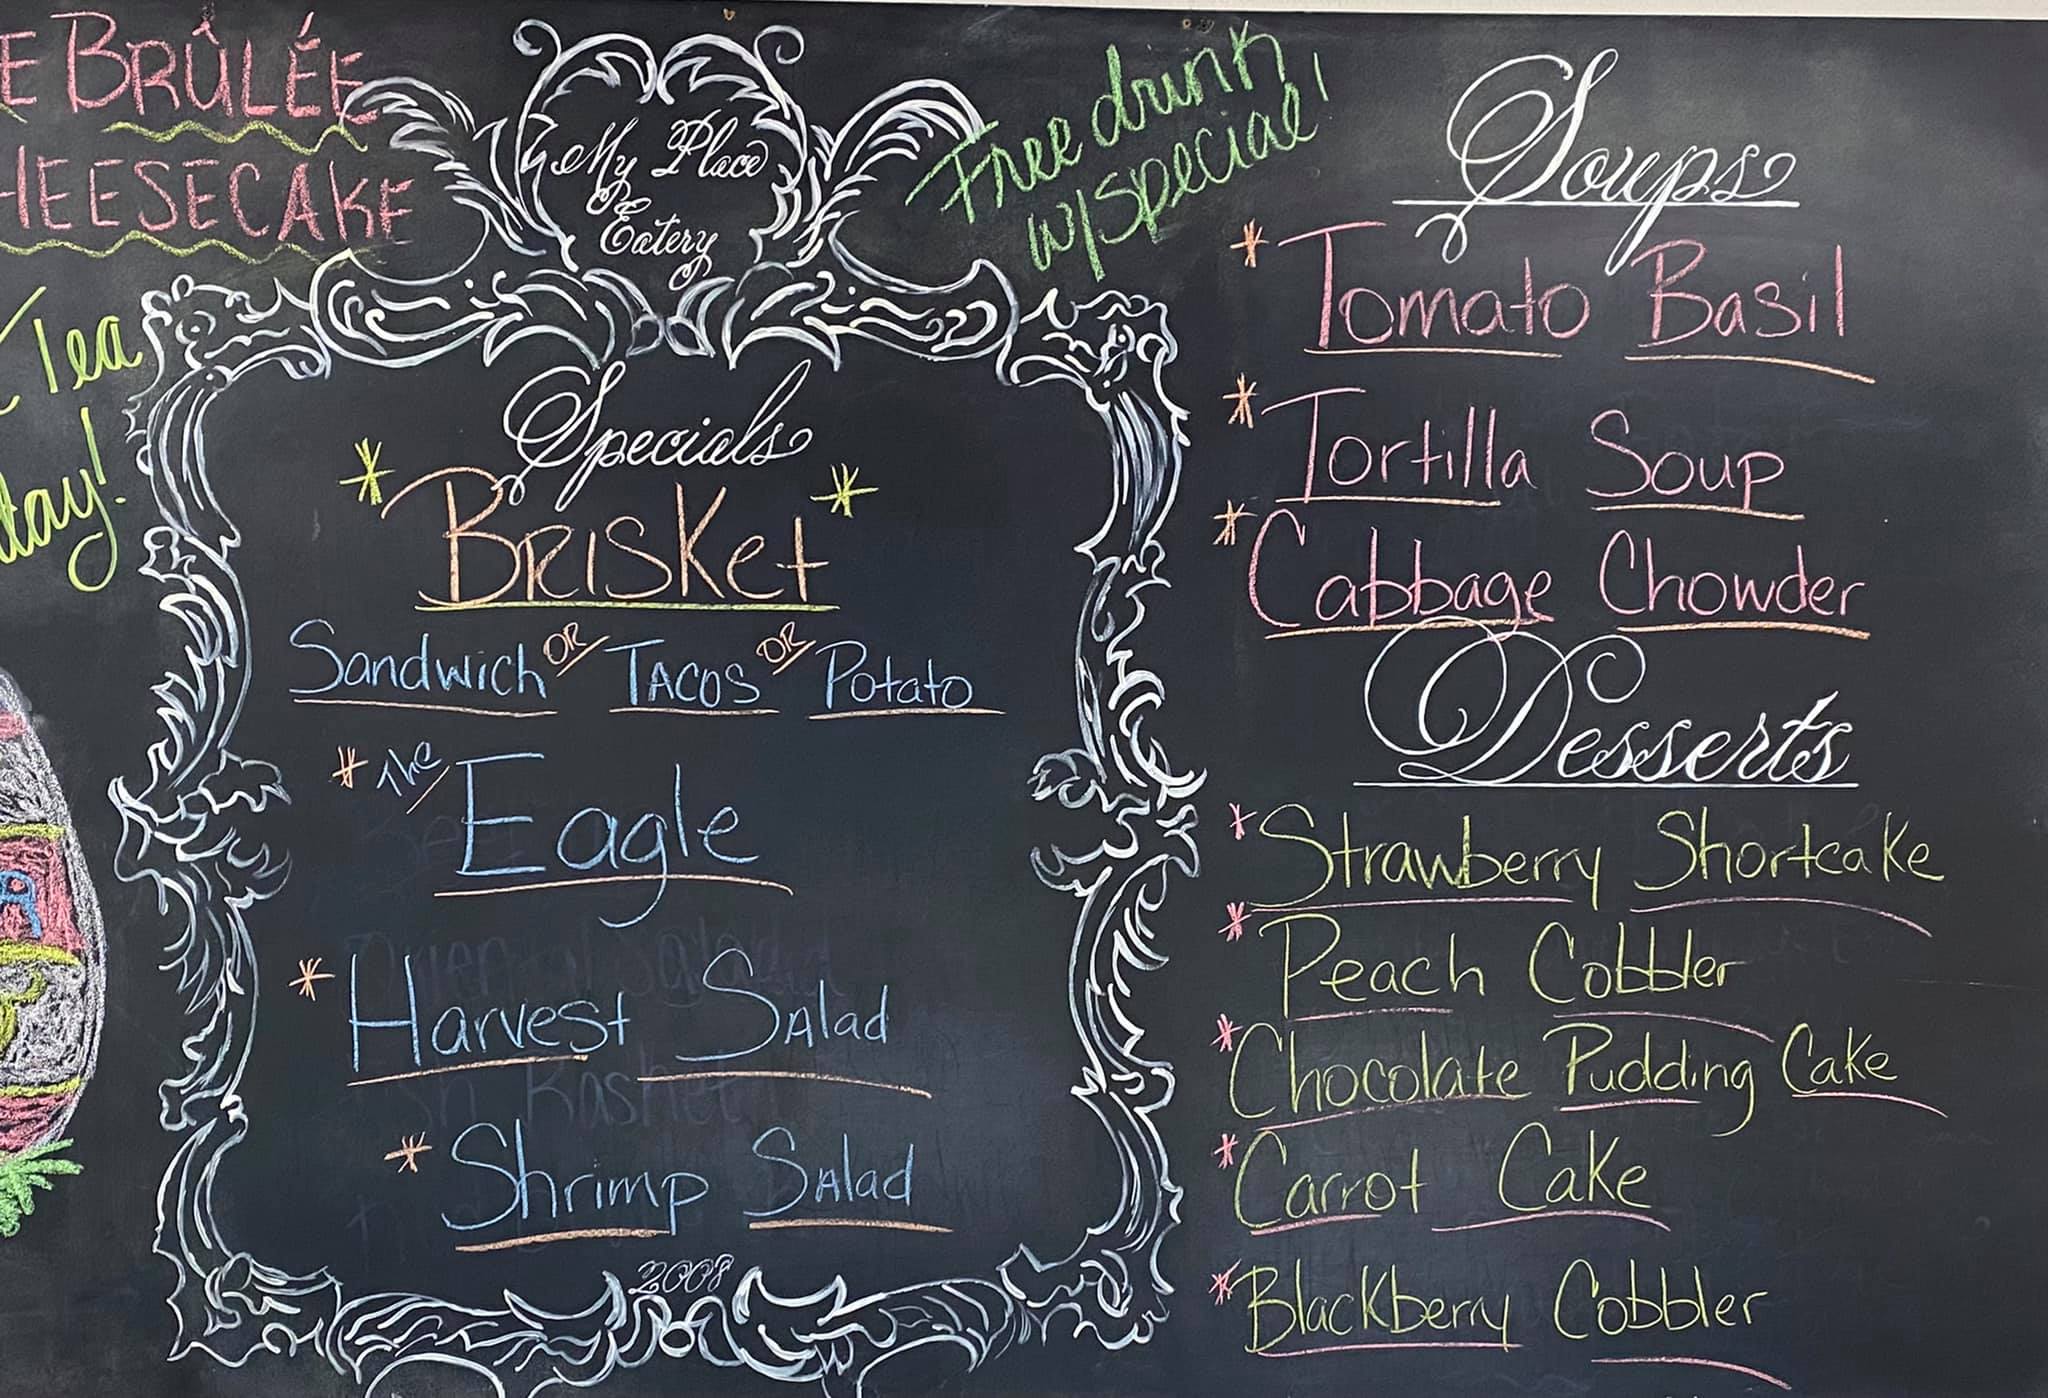 E BRÛLÉE
HEESECAKE
Tea
My Place
Eatery
Free drink
w/special!
Specials
* BRISKet *
Sandwich OR TACOS OR Potato
* The Eagle
* Harvest SAlad
* Shrimp SAlad
2008
Soups
* Tomato Basil
* Tortilla Soup
* Cabbage Chowder
Desserts
* Strawberry Shortcake
* Peach Cobbler
* Chocolate Pudding Cake
* Carrot Cake
* Blackberry Cobbler